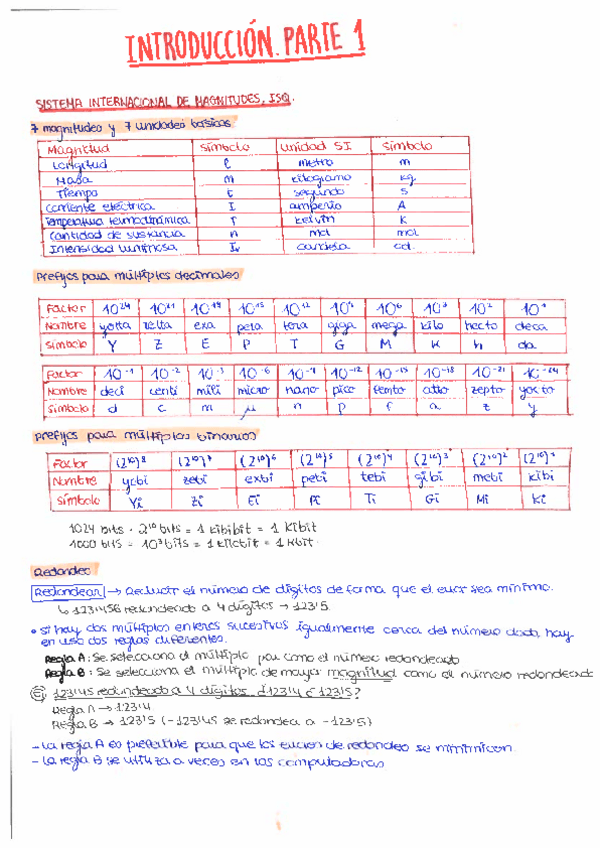 INTRODUCCIÓN. PARTE 1
SISTEMA INTERNACIONAL DE MAGNITUDES, ISQ.
7 magnitudes y 7 unidades básicas
Magnitud símbolo unidad SI símbolo
Longitud l metro m
Masa m kilogramo kg
Tiempo t segundo s
corriente eléctrica I amperio A
Temperatura termodinámica T kelvin K
Cantidad de sustancia n mol mol
Intensidad luminosa Iv candela cd
Prefijos para múltiplos decimales
Factor 10²⁴ 10²¹ 10¹⁸ 10¹⁵ 10¹² 10⁹ 10⁶ 10³ 10² 10¹
Nombre yotta zetta exa peta tera giga mega kilo hecto deca
símbolo Y Z E P T G M k h da
Factor 10⁻¹ 10⁻² 10⁻³ 10⁻⁶ 10⁻⁹ 10⁻¹² 10⁻¹⁵ 10⁻¹⁸ 10⁻²¹ 10⁻²⁴
Nombre deci centi mili micro nano pico femto atto zepto yocto
símbolo d c m μ n p f a z y
prefijos para múltiplos binarios
Factor (2¹⁰)⁸ (2¹⁰)⁷ (2¹⁰)⁶ (2¹⁰)⁵ (2¹⁰)⁴ (2¹⁰)³ (2¹⁰)² (2¹⁰)¹
Nombre yobi zebi exbi pebi tebi gibi mebi kibi
símbolo Yi Zi Ei Pi Ti Gi Mi ki
1024 bits = 2¹⁰ bits = 1 kibibit = 1 kibit
1000 bits = 10³ bits = 1 kilobit = 1 kbit
Redondeo
Redondear → Reducir el número de dígitos de forma que el error sea mínimo.
↳ 123'456 redondeado a 4 dígitos → 123'5.
• si hay dos múltiplos enteros sucesivos igualmente cerca del número dado, hay
en uso dos reglas diferentes.
Regla A: Se selecciona el múltiplo par como el número redondeado
Regla B: Se selecciona el múltiplo de mayor magnitud como el número redondeado
Ej. 123'45 redondeado a 4 dígitos ¿123'4 ó 123'5?
Regla A → 123'4
Regla B → 123'5 (-123'45 se redondea a -123'5)
- La regla A es preferible para que los errores de redondeo se minimicen.
- La regla B se utiliza a veces en los computadores